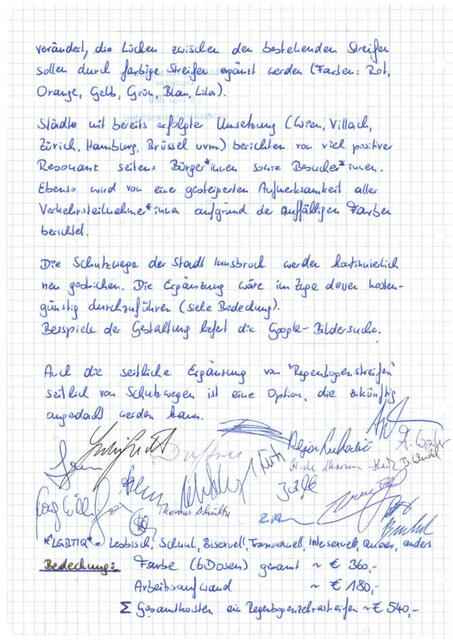 verändert, die Lücken zwischen den bestehenden Streifen
sollen durch farbige Streifen ergänzt werden (Farben: Rot,
Orange, Gelb, Grün, Blau, Lila).
Städte mit bereits erfolgter Umsetzung (Wien, Villach,
Zürich, Hamburg, Brüssel uvm) berichten von viel positive
Resonanz seitens Bürger*innen sowie Besucher*innen.
Ebenso wird von eine gesteigerten Aufmerksamkeit aller
Verkehrsteilnehmer*innen aufgrund der auffälligen Farben
berichtet.
Die Schutzwege der Stadt Innsbruck werden kontinuierlich
neu gestrichen. Die Ergänzung wäre im Zuge dessen kosten-
günstig durchzuführen (siehe Bedeckung).
Beispiele der Gestaltung liefert die Google-Bildersuche.
Auch die seitliche Ergänzung von "Regenbogenstreifen"
seitlich von Schutzwegen ist eine Option, die zukünftig
angedacht werden kann.
Thomas
*LGBTIQ* = Lesbisch, Schwul, Bisexuell, Transsexuell, intersexuell, queer, anders
Bedeckung: Farbe (6 Dosen) gesamt ~ € 360,-
Arbeitsaufwand ~ € 180,-
Σ Gesamtkosten ein Regenbogenzebrastreifen ~ € 540,-